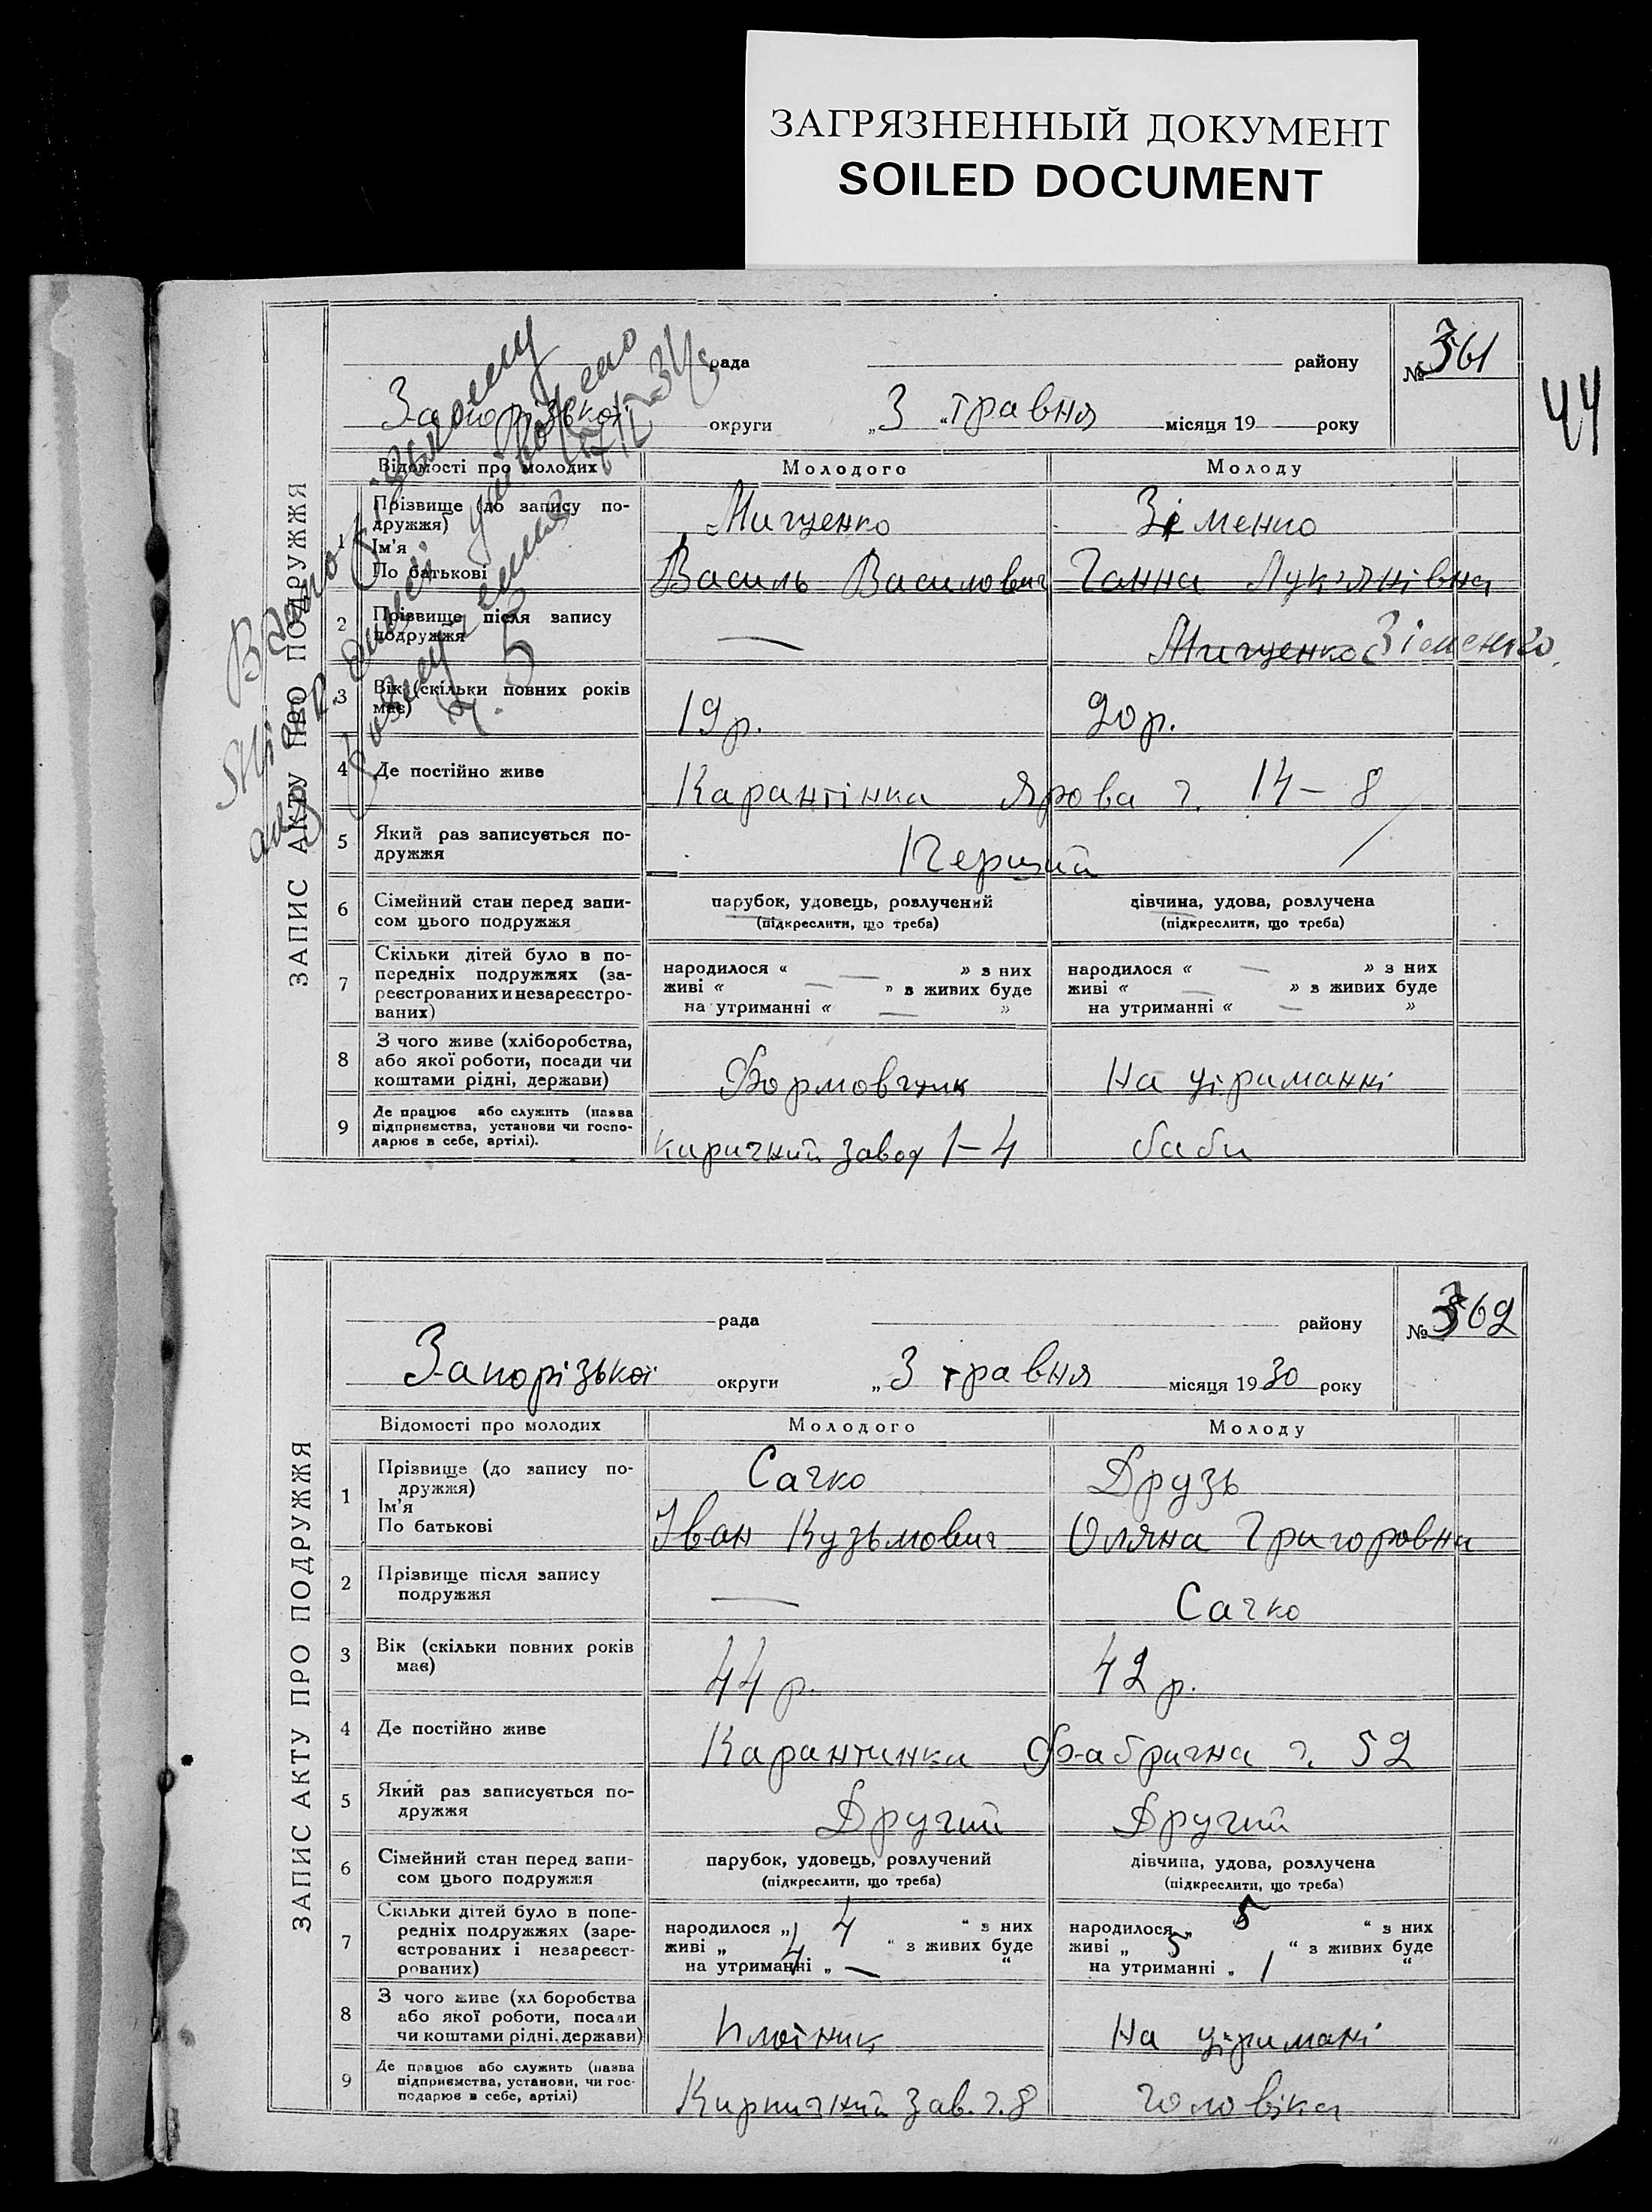 ЗАГРЯЗНЕННЫЙ ДОКУМЕНТ
SOILED DOCUMENT
44
ЗАПИС АКТУ ПРО ПОДРУЖЖЯ
рада району № 361
округи „3 “ травня місяця 19 року
Відомості про молодих Молодого Молоду
1 Прізвище (до запису по-
дружжя) Мищенко Зіменко
Ім'я
По батькові Василь Василович Ганна Лук'янівна
2 Прізвище після запису
подружжя — Мищенко Зіменко
3 Вік (скільки повних років
має) 19 р. 20 р.
4 Де постійно живе Карантінка Ярова ч. 14 – 8
5 Який раз записується по-
дружжя Перший
6 Сімейний стан перед запи-
сом цього подружжя
парубок, удовець, розлучений дівчина, удова, розлучена
(підкреслити, що треба) (підкреслити, що треба)
7 Скільки дітей було в по-
передніх подружжях (за-
реєстрованих и незареєстро-
ваних)
народилося « — » з них народилося « — » з них
живі « — » з живих буде живі « — » з живих буде
на утриманні « — » на утриманні « — »
8 З чого живе (хліборобства,
або якої роботи, посади чи
коштами рідні, держави) Формовчик На утриманні
9 Де працює або служить (назва
підприємства, установи чи госпо-
дарює в себе, артілі). Киричний завод 1–4 баби
ЗАПИС АКТУ ПРО ПОДРУЖЖЯ
рада району № 362
Запорізької округи „3 травня місяця 1930 року
Відомості про молодих Молодого Молоду
1 Прізвище (до запису по-
дружжя) Сачко Друзь
Ім'я
По батькові Іван Кузьмович Оляна Григоровна
2 Прізвище після запису
подружжя — Сачко
3 Вік (скільки повних років
має) 44 р. 42 р.
4 Де постійно живе Карантинка Фабрична ч. 52
5 Який раз записується по-
дружжя Другий Другий
6 Сімейний стан перед запи-
сом цього подружжя
парубок, удовець, розлучений дівчина, удова, розлучена
(підкреслити, що треба) (підкреслити, що треба)
7 Скільки дітей було в попе-
редніх подружжях (заре-
єстрованих і незареєст-
рованих)
народилося „ 4 “ з них народилося „ 5 “ з них
живі „ 4 “ з живих буде живі „ 5 “ з живих буде
на утриманні „ — “ на утриманні „ 1 “
8 З чого живе (хл боробства
або якої роботи, посади
чи коштами рідні, держави) Плотник На утримані
9 Де працює або служить (назва
підприємства, установи, чи гос-
подарює в себе, артілі) Кирпичний зав. ч. 8 чоловіка